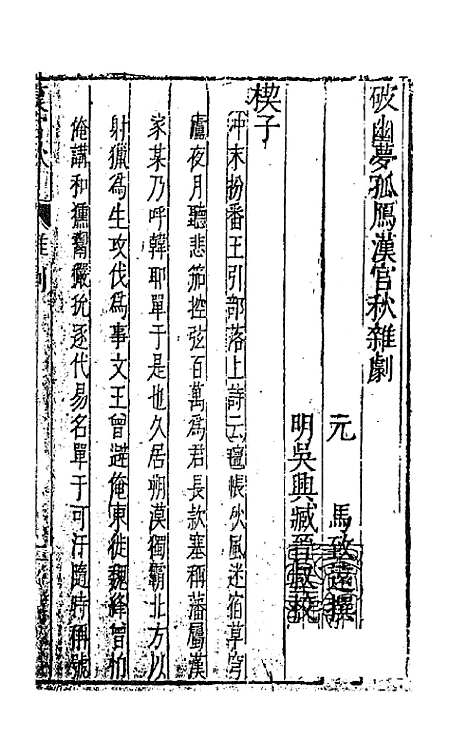 破幽夢孤鴈漢宮秋雜劇
元 馬致遠撰
明吳興臧晉叔校
楔子
沖末扮番王引部落上詩云氊帳秋風迷宿草穹
廬夜月聽悲笳控弦百萬爲君長款塞稱藩屬漢
家某乃呼韓耶單于是也久居朔漠獨霸北方以
射獵爲生攻伐爲事文王曾避俺東徙魏絳曾怕
俺講和獯鬻玁狁逐代易名單于可汗隨時稱號